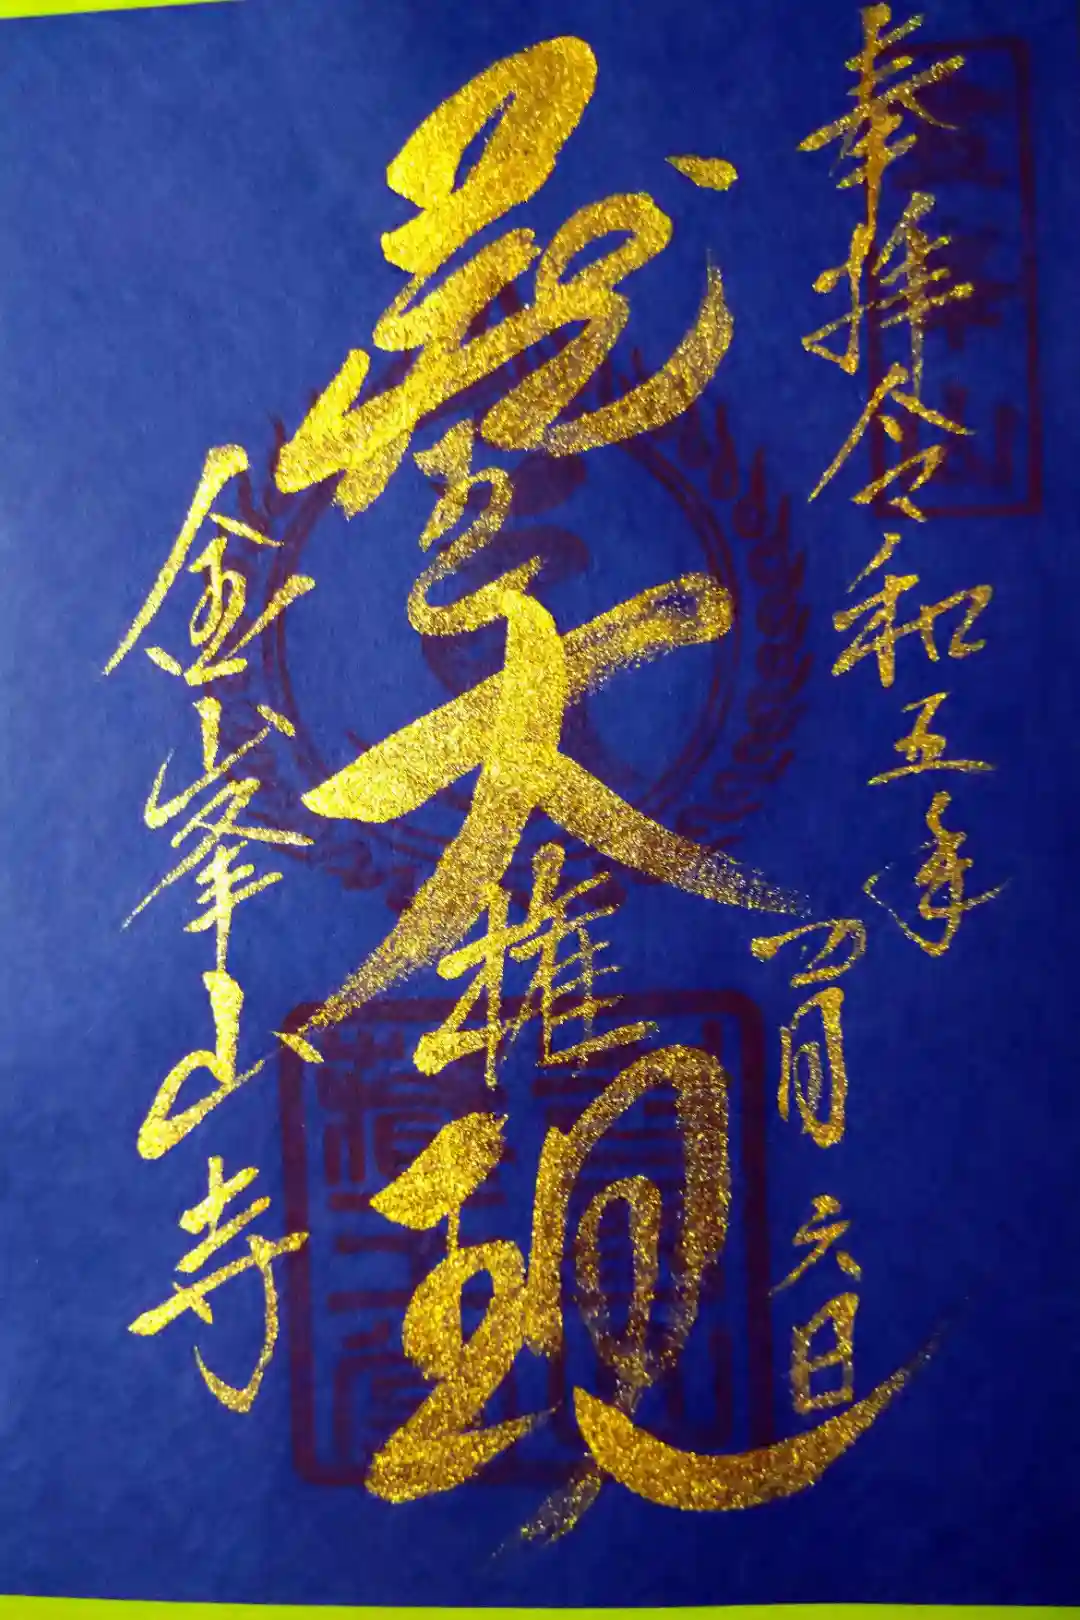 奉拝 令和五年 四月 六日
蔵王大権現
金峯山寺